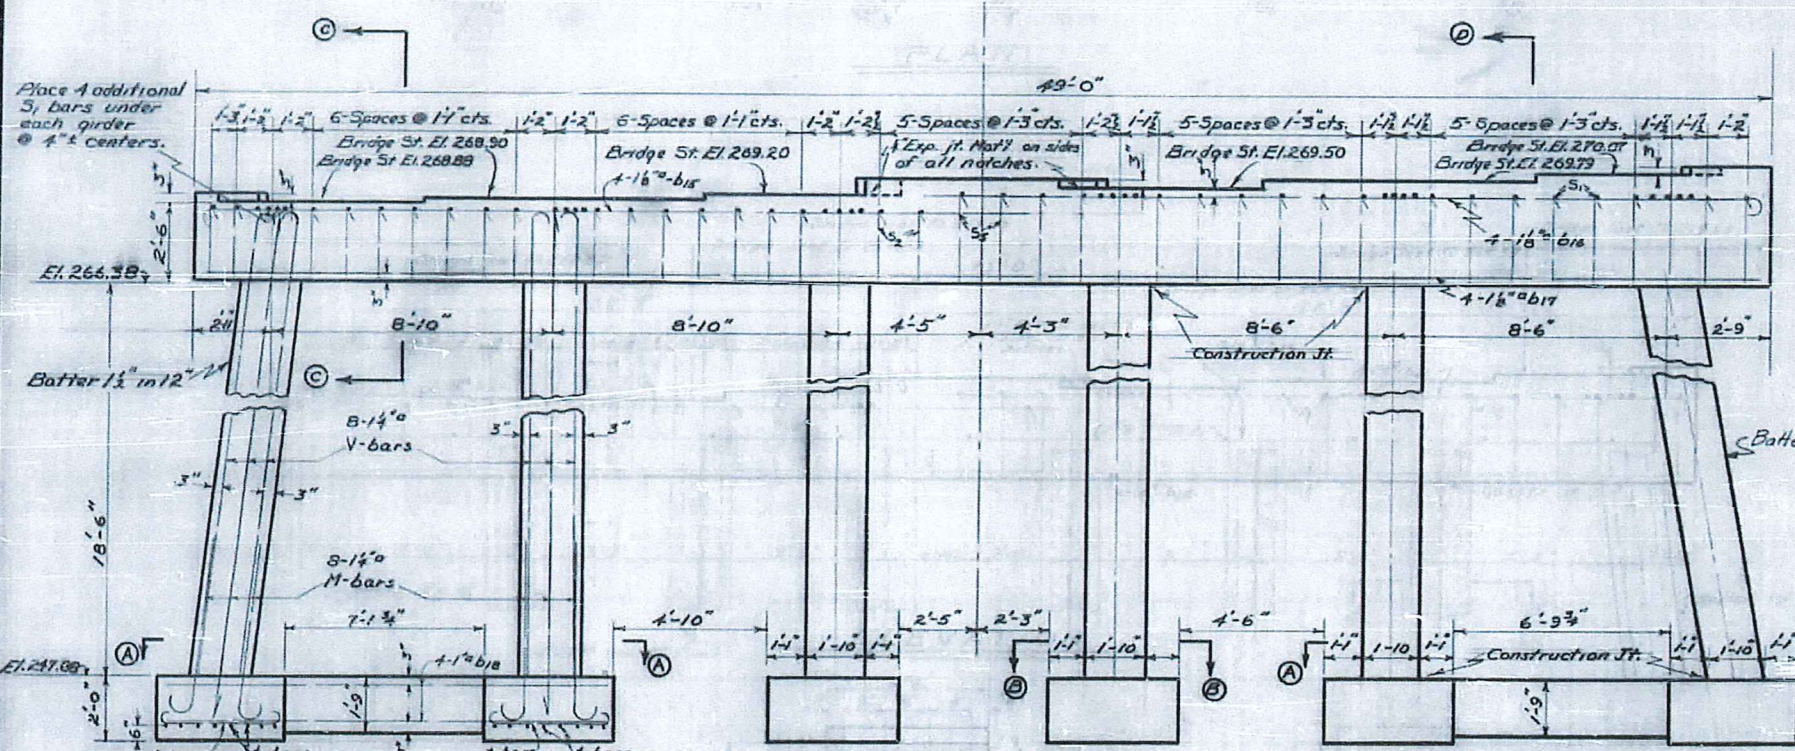 C
D
49'-0"
Place 4 additional
S₁ bars under
each girder
@ 4"± centers.
1'-3" 1'-2" 1'-2" 6-Spaces @ 1'-1" cts. 1'-2" 1'-2" 6-Spaces @ 1'-1" cts. 1'-2" 1'-2½" 5-Spaces @ 1'-3" cts. 1'-2½" 1'-1½" 5-Spaces @ 1'-3" cts. 1'-1½" 1'-1½" 5-Spaces @ 1'-3" cts. 1'-1½" 1'-1½" 1'-2"
Bridge St. El. 268.90
Bridge St. El. 268.88
Bridge St. El. 269.20
Exp. jt. Mat'l. on sides
of all notches.
Bridge St. El. 269.50
Bridge St. El. 270.07
Bridge St. El. 269.79
3" 3" 3" 3" 3"
4-1⅛"□-b15
S₁
2'-6"
S₂ S₃
4-1⅛"□-b16
El. 266.38
3"
4-1⅛"□b17
2'-11" 8'-10" 8'-10" 4'-5" 4'-3" 8'-6" 8'-6" 2'-9"
Construction Jt.
Batter 1½" in 12"
C
8-1¼"□
V-bars
3" 3"
Batte
3" 3"
18'-6"
8-1¼"□
M-bars
7'-1¾" 4'-10" 2'-5" 2'-3" 4'-6" 6'-9¾"
A A 1'-1" 1'-10" 1'-1" B 1'-1" 1'-10" B A 1'-1" 1'-10" 1'-1" Construction Jt. 1'-1" 1'-10" 1'-1"
El. 247.88
3" 4-1"□b18
2'-0" 1'-9" 1'-9"
6"